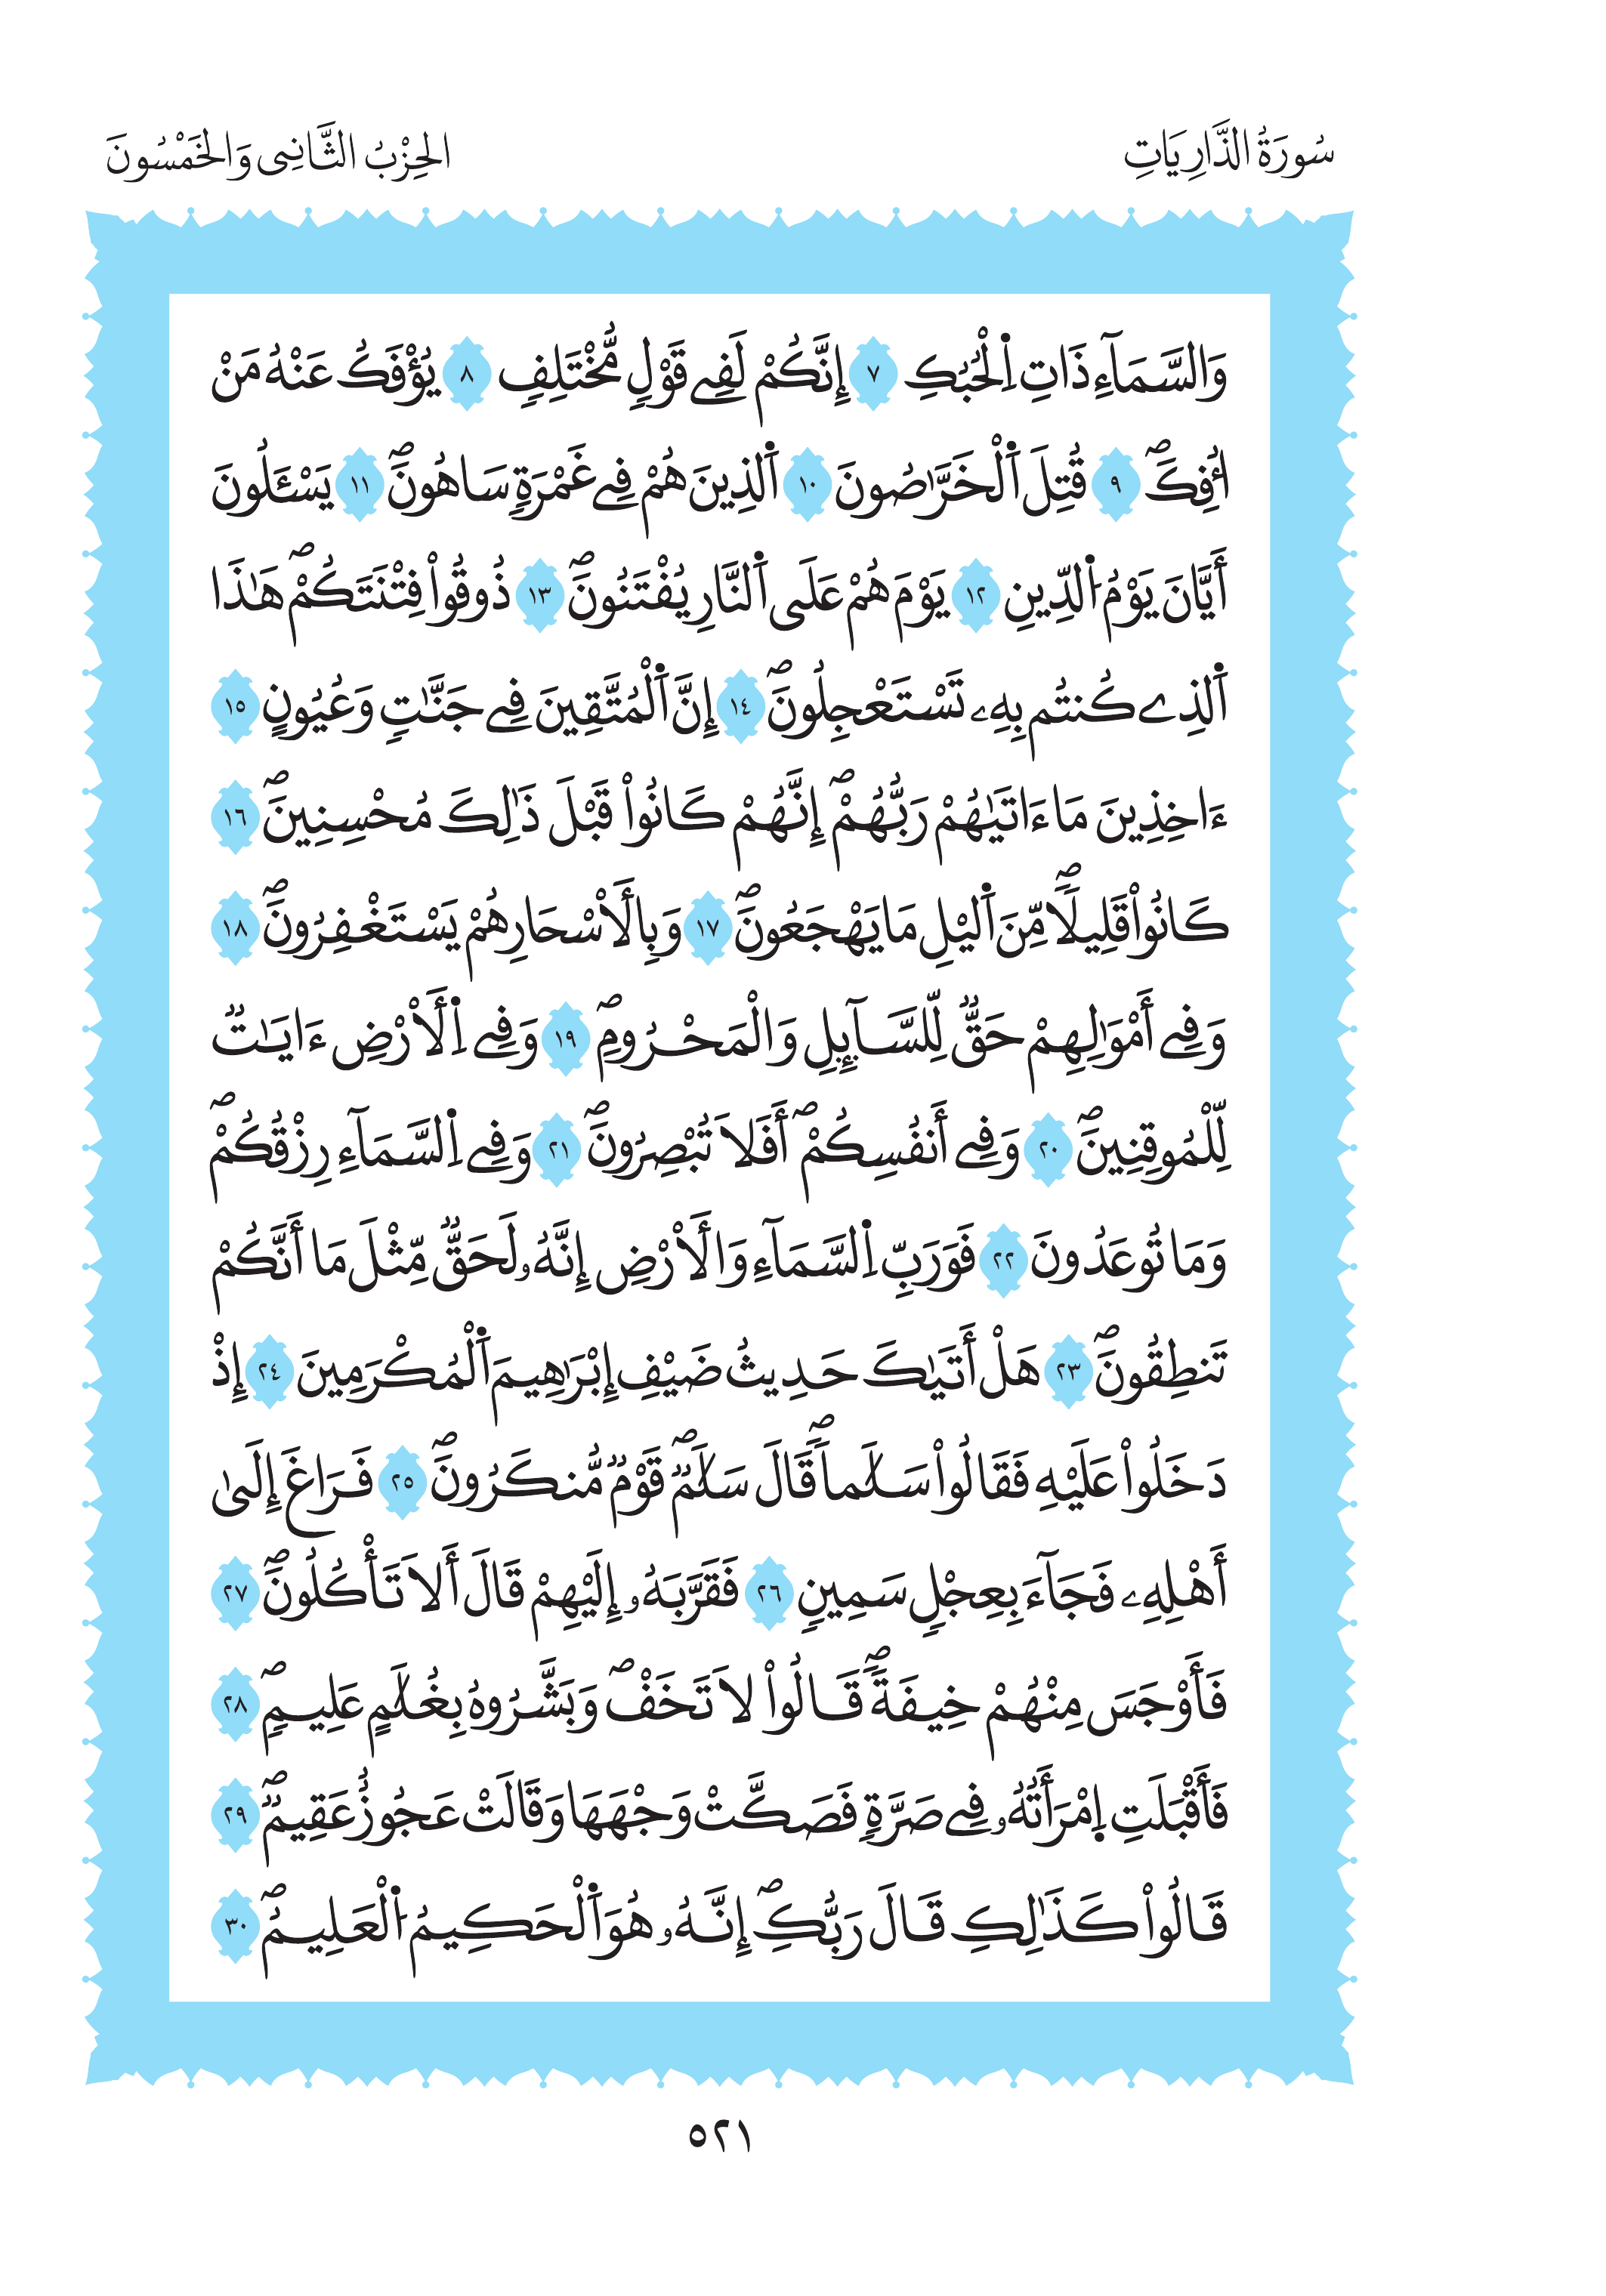 سُورَةُ الذَّارِيَاتِ
الحِزْبُ الثَّانِى وَالخَمْسُونَ
وَالسَّمَآءِ ذَاتِ اِ۬لْحُبُكِ ٧ إِنَّكُمْ لَفِے قَوْلٖ مُّخْتَلِفٖ ٨ يُؤْفَكُ عَنْهُ مَنْ
ا۟فِكَۖ ٩ قُتِلَ اَ۬لْخَرَّٰصُونَ ١٠ اَ۬لذِينَ هُمْ فِے غَمْرَةٖ سَاهُونَۖ ١١ يَسْـَٔلُونَ
أَيَّانَ يَوْمُ اُ۬لدِّينِ ١٢ يَوْمَ هُمْ عَلَى اَ۬لنَّارِ يُفْتَنُونَۖ ١٣ ذُوقُواْ فِتْنَتَكُمْۖ هَٰذَا
اَ۬لذِے كُنتُم بِهِۦ تَسْتَعْجِلُونَۖ ١٤ إِنَّ اَ۬لْمُتَّقِينَ فِے جَنَّٰتٖ وَعُيُونٍ ١٥
ءَاخِذِينَ مَا ءَاتَيٰهُمْ رَبُّهُمْۖ إِنَّهُمْ كَانُواْ قَبْلَ ذَٰلِكَ مُحْسِنِينَۖ ١٦
كَانُواْ قَلِيلاٗۖ مِّنَ اَ۬ليْلِ مَا يَهْجَعُونَۖ ١٧ وَبِالَاسْحَارِ هُمْ يَسْتَغْفِرُونَۖ ١٨
وَفِے أَمْوَٰلِهِمْ حَقّٞ لِّلسَّآئِلِ وَالْمَحْرُومِۖ ١٩ وَفِے اِ۬لَارْضِ ءَايَٰتٞ
لِّلْمُوقِنِينَۖ ٢٠ وَفِے أَنفُسِكُمْۖ أَفَلَا تُبْصِرُونَۖ ٢١ وَفِے اِ۬لسَّمَآءِ رِزْقُكُمْۖ
وَمَا تُوعَدُونَ ٢٢ فَوَرَبِّ اِ۬لسَّمَآءِ وَالَارْضِ إِنَّهُۥ لَحَقّٞ مِّثْلَ مَا أَنَّكُمْ
تَنطِقُونَۖ ٢٣ هَلْ أَتَيٰكَ حَدِيثُ ضَيْفِ إِبْرَٰهِيمَ اَ۬لْمُكْرَمِينَ ٢٤ إِذْ
دَخَلُواْ عَلَيْهِ فَقَالُواْ سَلَٰماٗۖ قَالَ سَلَٰمٞۖ قَوْمٞ مُّنكَرُونَۖ ٢٥ فَرَاغَ إِلَىٰ
أَهْلِهِۦ فَجَآءَ بِعِجْلٖ سَمِينٖ ٢٦ فَقَرَّبَهُۥ إِلَيْهِمْ قَالَ أَلَا تَأْكُلُونَۖ ٢٧
فَأَوْجَسَ مِنْهُمْ خِيفَةٗۖ قَالُواْ لَا تَخَفْۖ وَبَشَّرُوهُ بِغُلَٰمٍ عَلِيمٖۖ ٢٨
فَأَقْبَلَتِ اِ۪مْرَأَتُهُۥ فِے صَرَّةٖ فَصَكَّتْ وَجْهَهَا وَقَالَتْ عَجُوزٌ عَقِيمٞۖ ٢٩
قَالُواْ كَذَٰلِكِ قَالَ رَبُّكِۖ إِنَّهُۥ هُوَ اَ۬لْحَكِيمُ اُ۬لْعَلِيمُۖ ٣٠
٥٢١